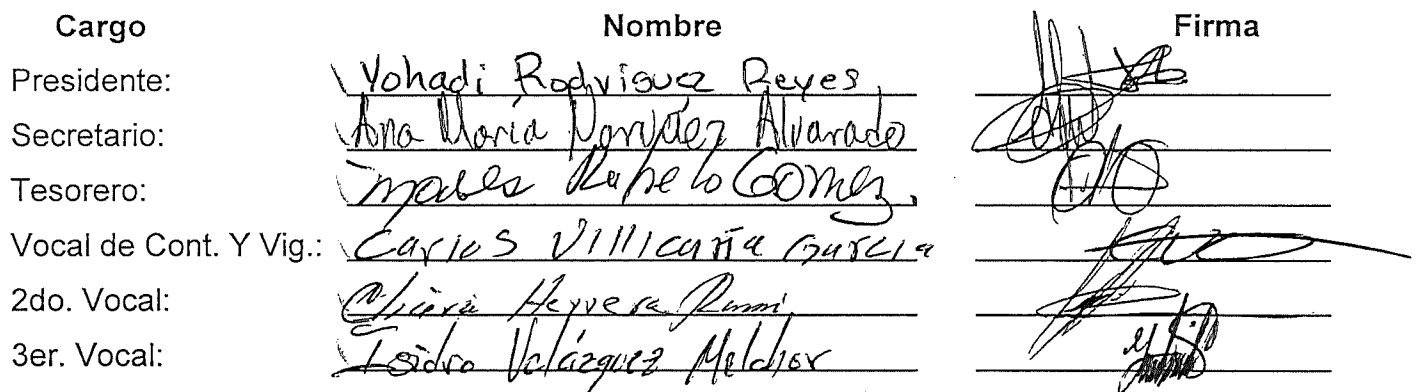 Cargo Nombre Firma
Presidente: Yohadi Rodriguez Reyes
Secretario: Ana María Narváez Alvarado
Tesorero: Gomez.
Vocal de Cont. Y Vig.: Carlos Villicaña Garcia
2do. Vocal: Herrera
3er. Vocal: Isidro Velázquez Melchor